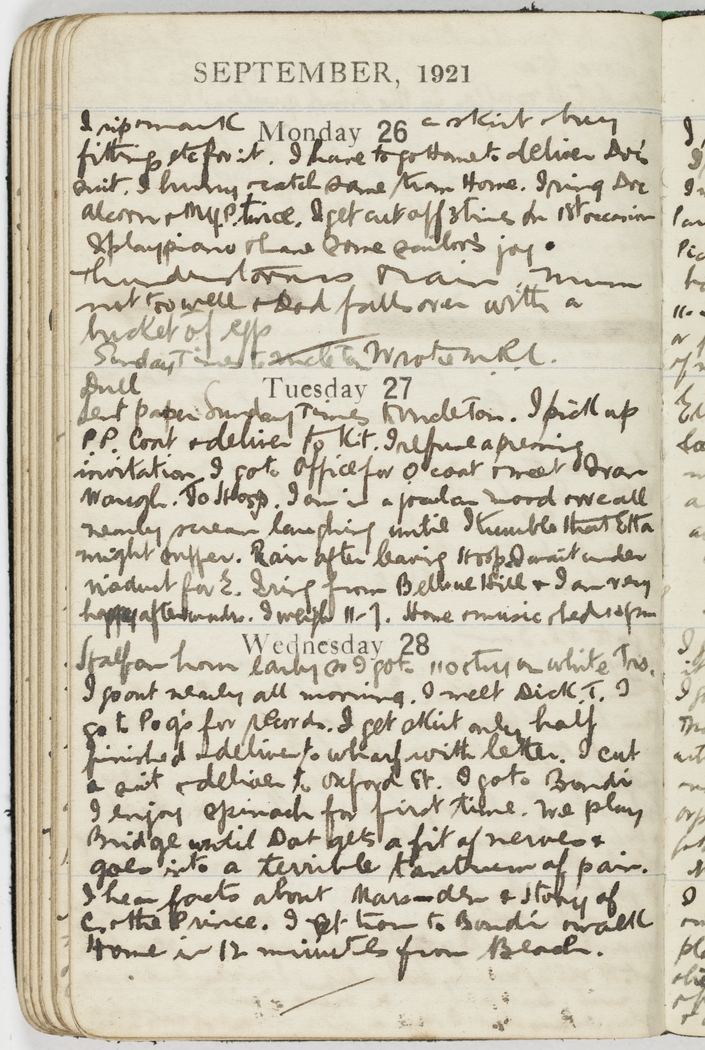 SEPTEMBER, 1921
I rip + mark a skirt + buy
Monday 26
fittings etc for it. I have to go Home to deliver Doc's
suit. I hurry + catch same tram Home. I ring Doc
Alcorn + M.P. twice. I get cut off 3 times on 1st occasion
I play piano + have some sailor's joy.
Thunderstorms + rain. Mum
not too well + Dad falls over with a
bucket of eggs
Sunday Times to Uncle Tom Wrote
Dull
Tuesday 27
sent paper Sunday Times to Uncle Tom. I pick up
P.P. Coat + deliver to Kit. I refuse a pressing
invitation. I go to Office for O'coat + meet
Waugh. To Stoop. I am in a jocular mood + we all
nearly scream laughing until I tumble that Etta
might suffer. Rain after leaving Stoops I wait under
viaduct for E. I ring from Bellvue Hill + I am very
happy afterwards. I weigh 11-7. Home + music + bed
Wednesday 28
half an hour early as I got on white
I go out nearly all morning. I meet Dick T. I
go to for records. I get skirt only half
finished + deliver to wharf with letter. I cut
a suit + deliver to Oxford St. I go to Bondi
I enjoy Spinach for first time. We play
Bridge until Dot gets a fit of nerves +
goes into a terrible tantrum of pain.
I hear facts about Marsden + Story of
C. + the Prince. I get tram to Bondi + walk
Home in 12 minutes from Beach.